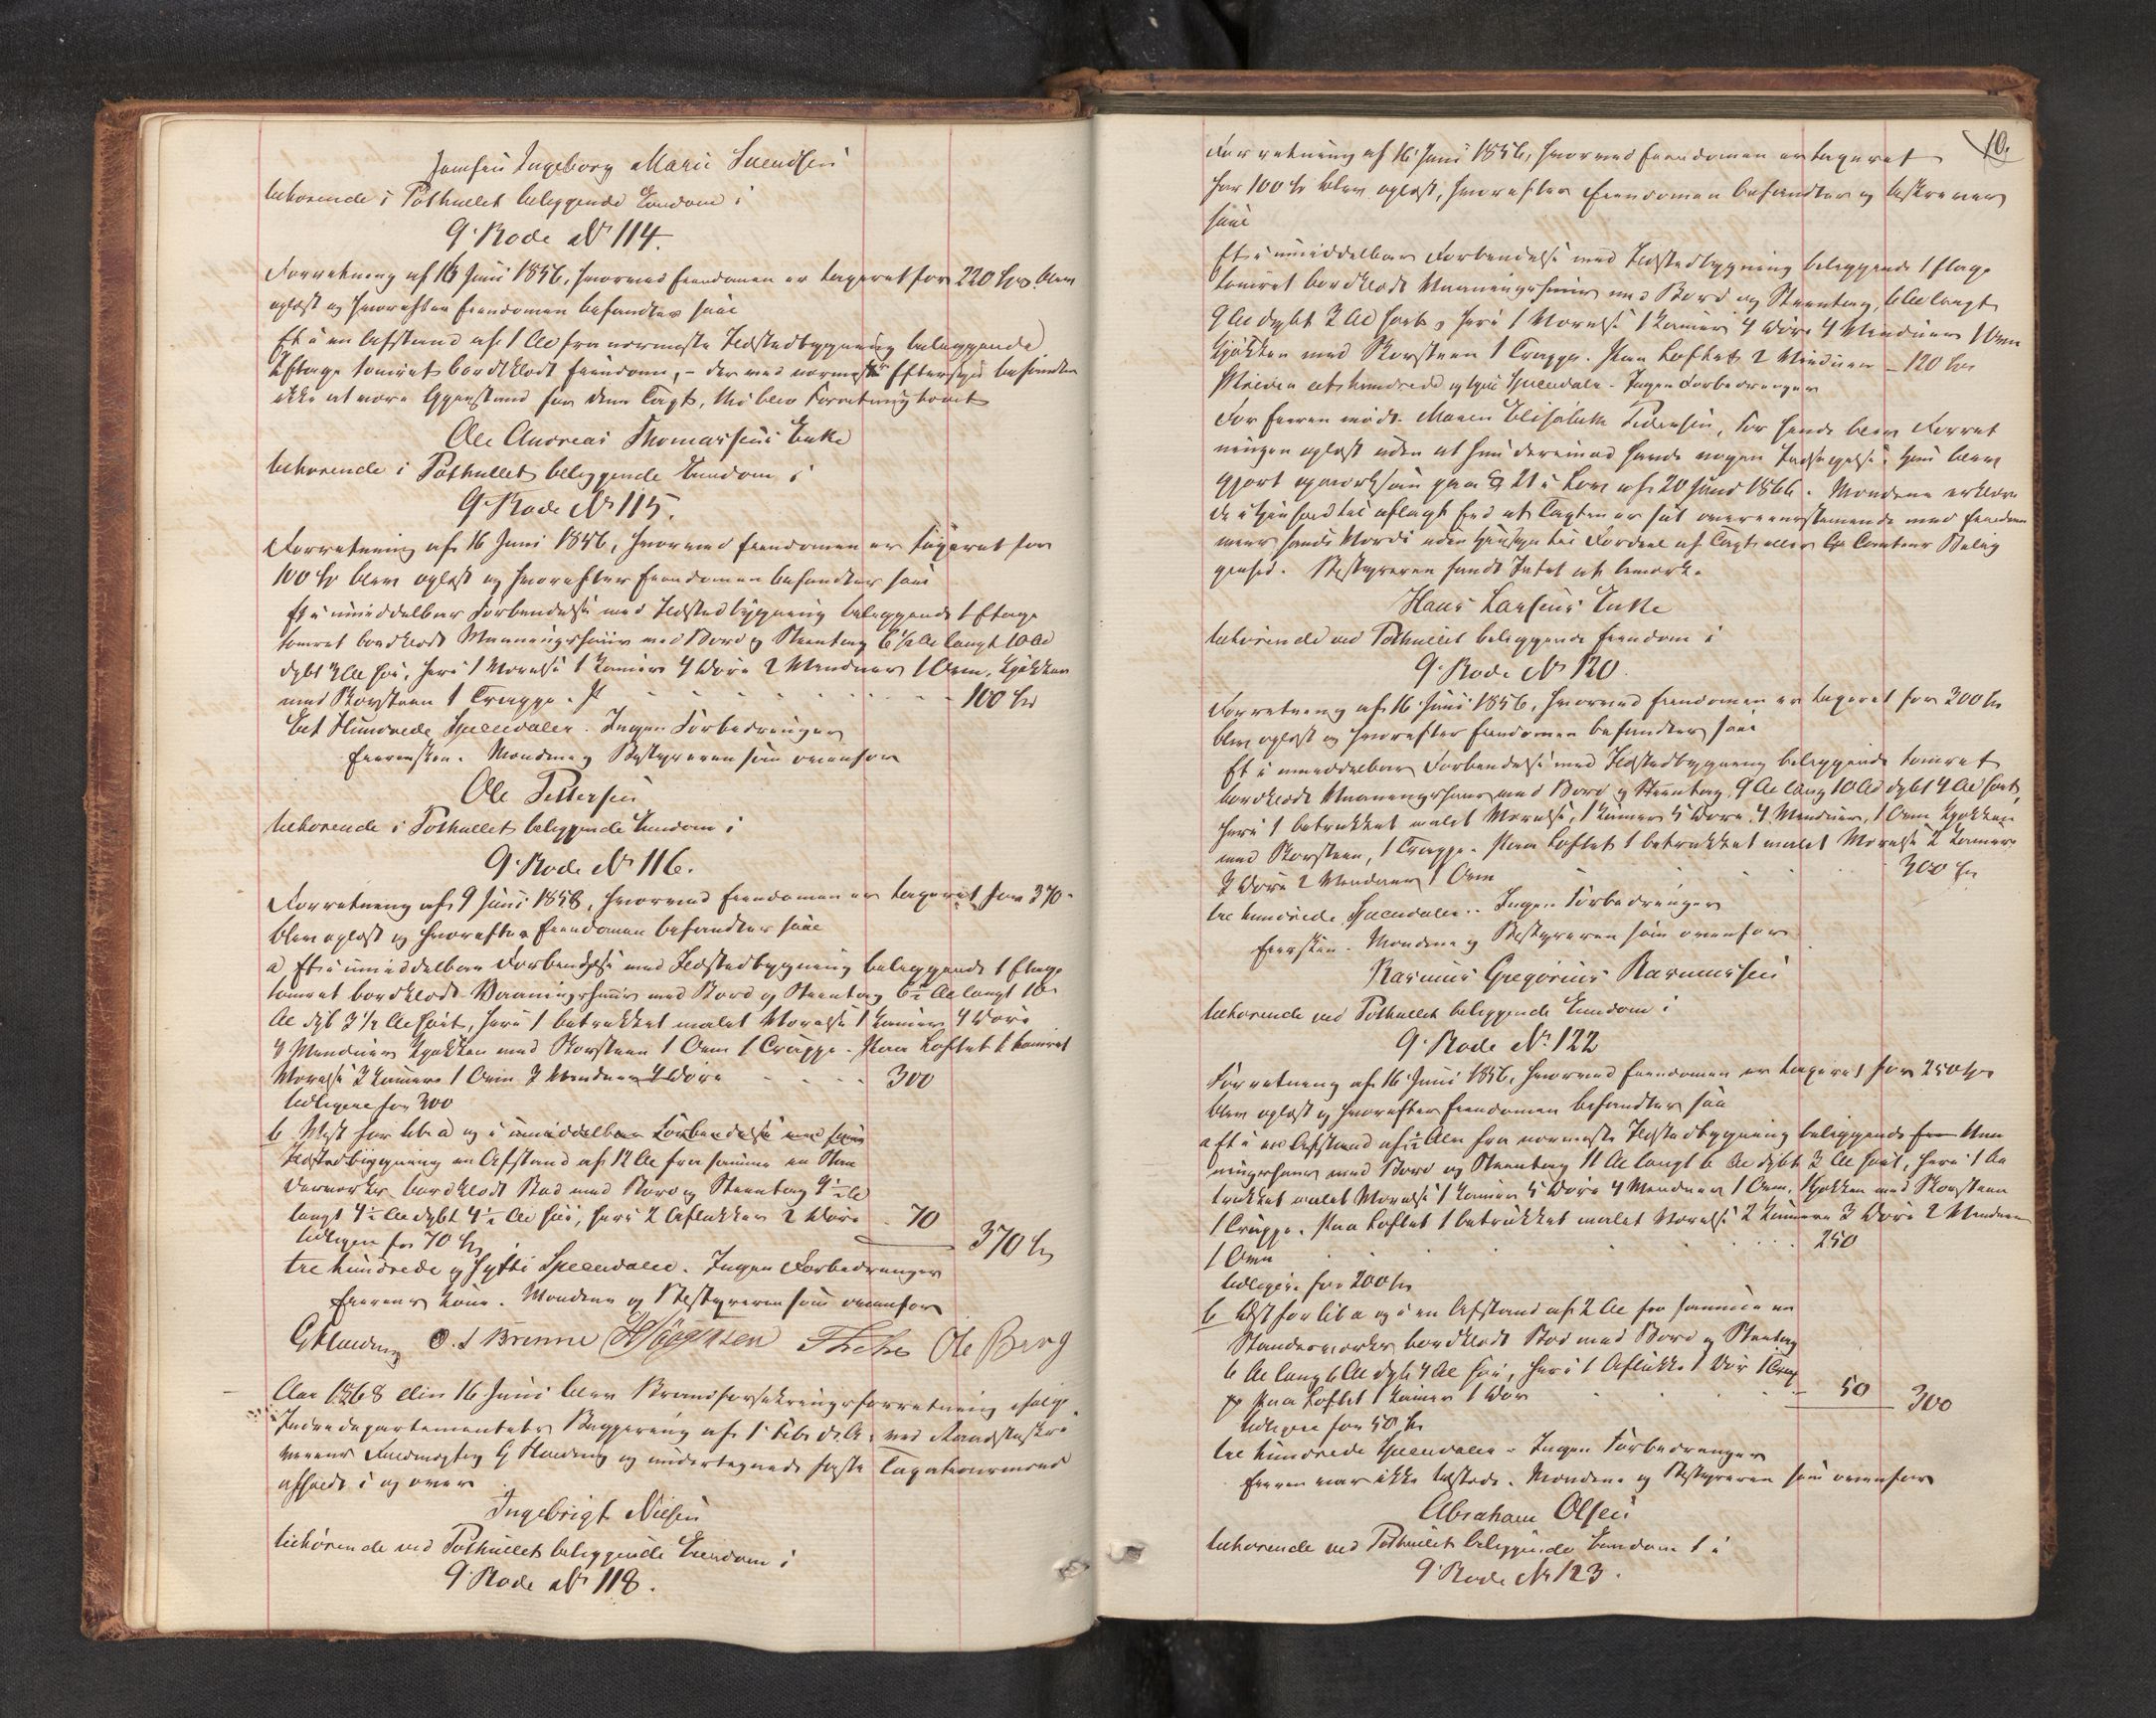 Jomfru Ingeborg Marie Svendsen
tilhørende i Pothullet beliggende Eiendom i
9 Rode No 114.
Forretning af 16 Juni 1856, hvorved Eiendommen er taxeret for 220 Spd. blev
oplæst og hvorefter Eiendommen befandtes saae
Et i en Afstand af 1 Al fra nærmeste Ildstedbygning beliggende
Etage tømret bordklædt Eiendom, - der ved nærmere Eftersyn befandtes
ikke at være Gjenstand for dem Taxt, thi blev Forretning hævet
Ole Andreas Thomassens Enke
tilhørende i Pothullet beliggende Eiendom i
9 Rode No 115.
Forretning af 16 Juni 1856, hvorved Eiendommen er taxeret for
100 Sp blev oplæst og hvorefter Eiendommen befandtes saae
Et i umiddelbar Forbindelse med Ildstedbygning beliggende 1 Etage
tømret bordklædt Vaaningshuus med Bord og Steentag 6 1/2 Al langt 10 Al
dybt 3 Al høi, heri 1 Værelse 1 Kamer 4 Døre 2 Vinduer 1 Ovn, Kjøkken
med Skorsteen 1 Trappe. - - - - 100 Spd
Eet Hundrede Speciedaler. Ingen Forbedringer
Eiersken. Mændene og Bestyreren som ovenfor
Ole Pettersen
tilhørende i Pothullet beliggende Eiendom i
9 Rode No 116.
Forretning af 9 Juni 1858, hvorved Eiendommen er taxeret for 370.
blev oplæst og hvorefter Eiendommen befandtes saae
a Et i umiddelbar Forbindelse med Ildstedbygning beliggende 1 Etage
tømret bordklædt Vaaningshuus med Bord og Steentag 6 1/2 Al langt 10
Al dyb 3 1/2 Al høit, heri 1 betrukket malet Værelse 1 Kamer 4 Døre
4 Vinduer Kjøkken med Skorsteen 1 Ovn 1 Trappe. Paa Loftet 1 tømret
Værelse 2 Kamere 1 Ovn 3 Vinduer 4 Døre - - - 300
tidligere for 300
b Vest for lit. a og i umiddelbar Forbindelse med samme
Ildstedbygning en Afstand af 12 Al fra samme en Stan
derværks bordklædt Bod med Bord og Steentag 9 1/2 Al
langt 4 1/2 Al dybt 4 1/2 Al høi, heri 2 Aflukker 2 Døre - 70
tidligere for 70 Sp 370 Sp
tre hundrede og sytti Speciedaler. Ingen Forbedringer
Eierens Kone. Mændene og Bestyreren som ovenfor
O. S Brenne Ole Berg
Aar 1868 den 16 Juni blev Brandforsikringsforretning ifølge
Indredepartementets Bevilling af 1 Feb. d.A. ved Raadstueskri
verens Fuldmægtig G Harding og undertegnede faste Taxationsmænd
afholdt i og over
Ingebrigt Nielsen
tilhørende ved Pothullet beliggende Eiendom i
9 Rode No 118.
10.
Forretning af 16 Juni 1856, hvorved Eiendommen er taxeret
for 100 Sp blev oplæst, hvorefter Eiendommen befandtes og beskreves
saae
Et i umiddelbar Forbindelse med Ildstedbygning beliggende 1 Etage
tømret bordklædt Vaaningshuus med Bord og Steentag, 6 Al langt
9 Al dybt 3 Al høit, heri 1 Værelse 1 Kamer 4 Døre 4 Vinduer 1 Ovn
Kjøkken med Skorsteen 1 Trappe. Paa Loftet 2 Vinduer - 120 Spd
Skriver et hundrede og tyve Speciedaler - Ingen Forbedringer
For Eieren mødte Maren Elisabeth Pedersen, for hende blev Forret
ningen oplæst uden at hun derimod havde nogen Indsigelse. Hun blev
gjort opmærksom paa § 21 i Lov af 20 Juni 1866. Mændene erklære
de i Henhold til aflagt Eed at Taxten er sat overeensstemmende med Eiendom
mens sande Værdi uden Hensyn til Fordeel af Taxt eller Comteur Belig
genhed. Bestyreren fandt Intet at bemærke.
Hans Larsens Enke
tilhørende ved Pothullet beliggende Eiendom i
9 Rode No 120.
Forretning af 16 Juni 1856, hvorved Eiendommen er taxeret for 300 Sp
blev oplæst og hvorefter Eiendommen befandtes saae
Et i umiddelbar Forbindelse med Ildstedbygning beliggende tømret
bordklædt Vaaningshuus med Bord og Steentag, 9 Al lang 10 Al dybt 4 Al høit,
heri 1 betrukket malet Værelse, 1 Kamer 5 Døre, 4 Vinduer, 1 Ovn Kjøkken
med Skorsteen, 1 Trappe. Paa Loftet 1 betrukket malet Værelse 2 Kamere
3 Døre 2 Vinduer 1 Ovn - - 300 Sp
tre hundrede Speciedaler. Ingen Forbedringer
Eiersken. Mændene og Bestyreren som ovenfor
Rasmus Gregorius Rasmussen
tilhørende ved Pothullet beliggende Eiendom i
9 Rode No 122
Forretning af 16 Juni 1856, hvorved Eiendommen er taxeret for 250 Sp
blev oplæst og hvorefter Eiendommen befandtes saa
a Et i en Afstand af 1/2 Alen fra nærmeste Ildstedbygning beliggende Vaa
ningshuus med Bord og Steentag 11 Al langt 6 Al dybt 3 Al høit, heri 1 be
trukket malet Værelse 1 Kamer 5 Døre 4 Vinduer 1 Ovn, Kjøkken med Skorsteen
1 Trappe. Paa Loftet 1 betrukket malet Værelse 2 Kamere 3 Døre 2 Vinduer
1 Ovn - - - 250
tidligere for 200 Sp
b Øst for lit a og i en Afstand af 2 Al fra samme en
Standerværks bordklædt Bod med Bord og Steentag
6 Al lang 6 Al dyb 4 Al høi, heri 1 Aflukke 1 Dør 1 Trap
pe Paa Loftet 1 Kamer 1 Dør - 50 300
tidligere for 50 Sp
tre hundrede Speciedaler - Ingen Forbedringer
Eieren var ikke tilstede. Mændene og Bestyreren som ovenfor
Abraham Olsen
tilhørende ved Pothullet beliggende Eiendom i
9 Rode No 123.